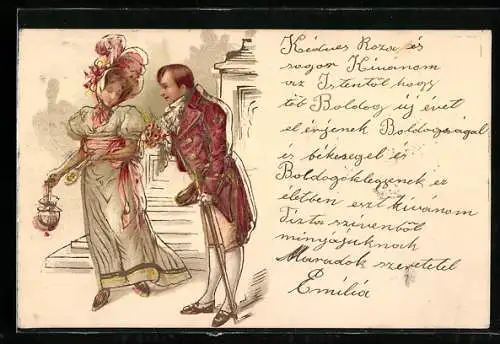 Kedves Roza és
sogor Kivánom
az Istentöl hogy
töb Boldog új évet
el érjenek Boldogságal
és békeségel és
Boldogok legyenek ez
életben eszt kivánom
Tiszta szivemböl
mingájuknak
Maradok szeretetel
Emília